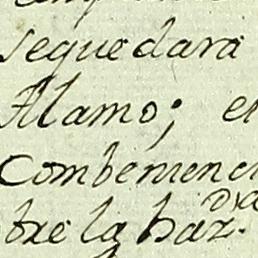 sequedara
Alamo; en
Combenienci
tre la haz.